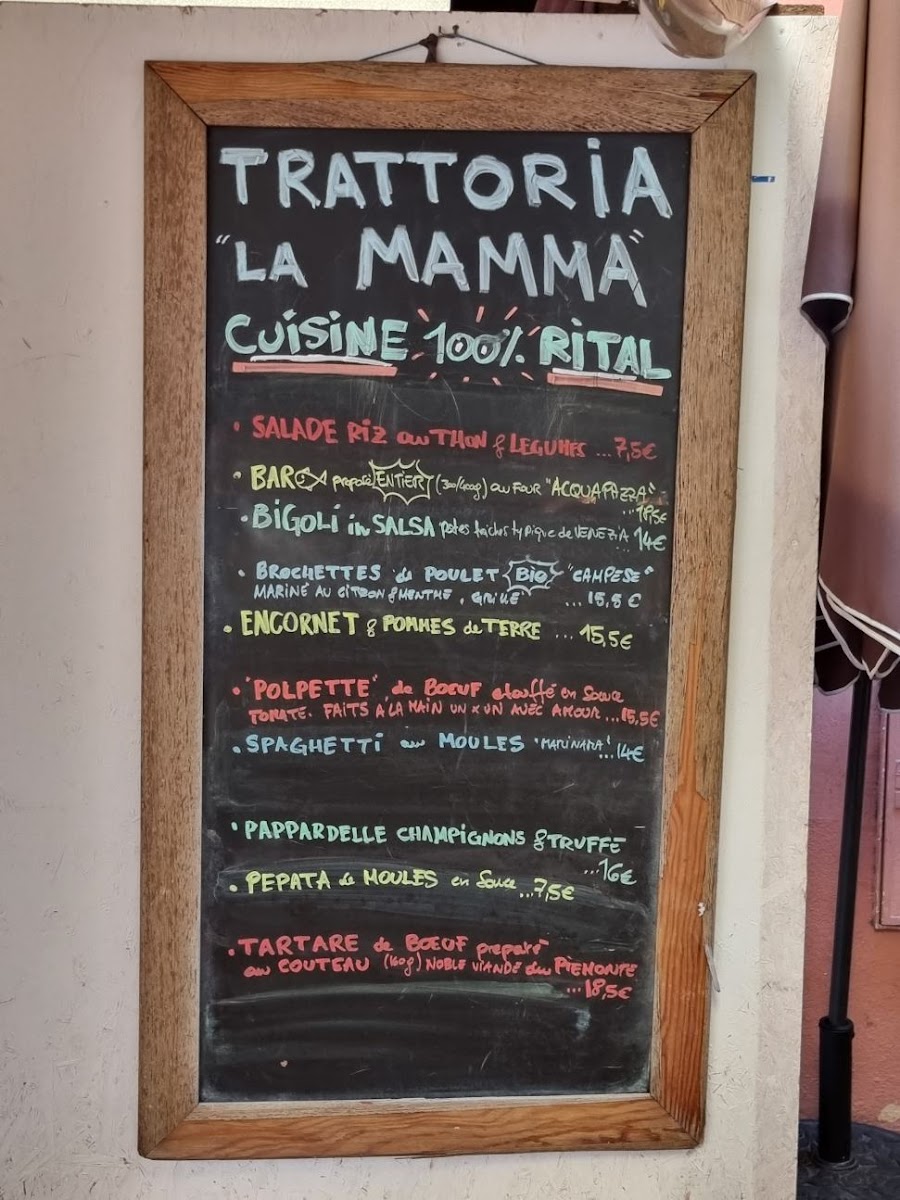 TRATTORiA
"LA MAMMA"
CUiSiNE 100% RiTAL
• SALADE RiZ au THON & LEGUMES ...7,5€
• BAR preparé ENTiER (300/400g) au FOUR "ACQUAPAZZA"
...18,5€
• BiGOLi in SALSA pates fraiches typique de VENEZiA ... 14€
• BROCHETTES de POULET BiO "CAMPESE"
MARINÉ AU CITRON & MENTHE, GRILLÉ ...15,5€
• ENCORNET & POMMES de TERRE ...15,5€
• "POLPETTE" de BŒUF etouffé en Sauce
TOMATE. FAITS A LA MAIN UN x UN AVEC AMOUR...15,5€
• SPAGHETTi au MOULES "MARiNARA" ...14€
• PAPPARDELLE CHAMPiGNONS & TRUFFE
...16€
• PEPATA de MOULES en Sauce ...7,5€
• TARTARE de BŒUF preparé
au COUTEAU (160g) NOBLE ViANDE du PiEMONTE
...18,5€